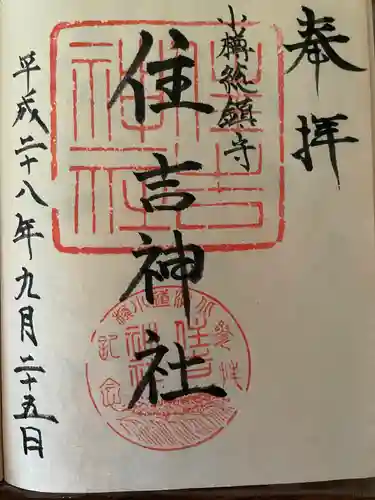 奉拝
小樽総鎮守
住吉神社
平成二十八年九月二十五日